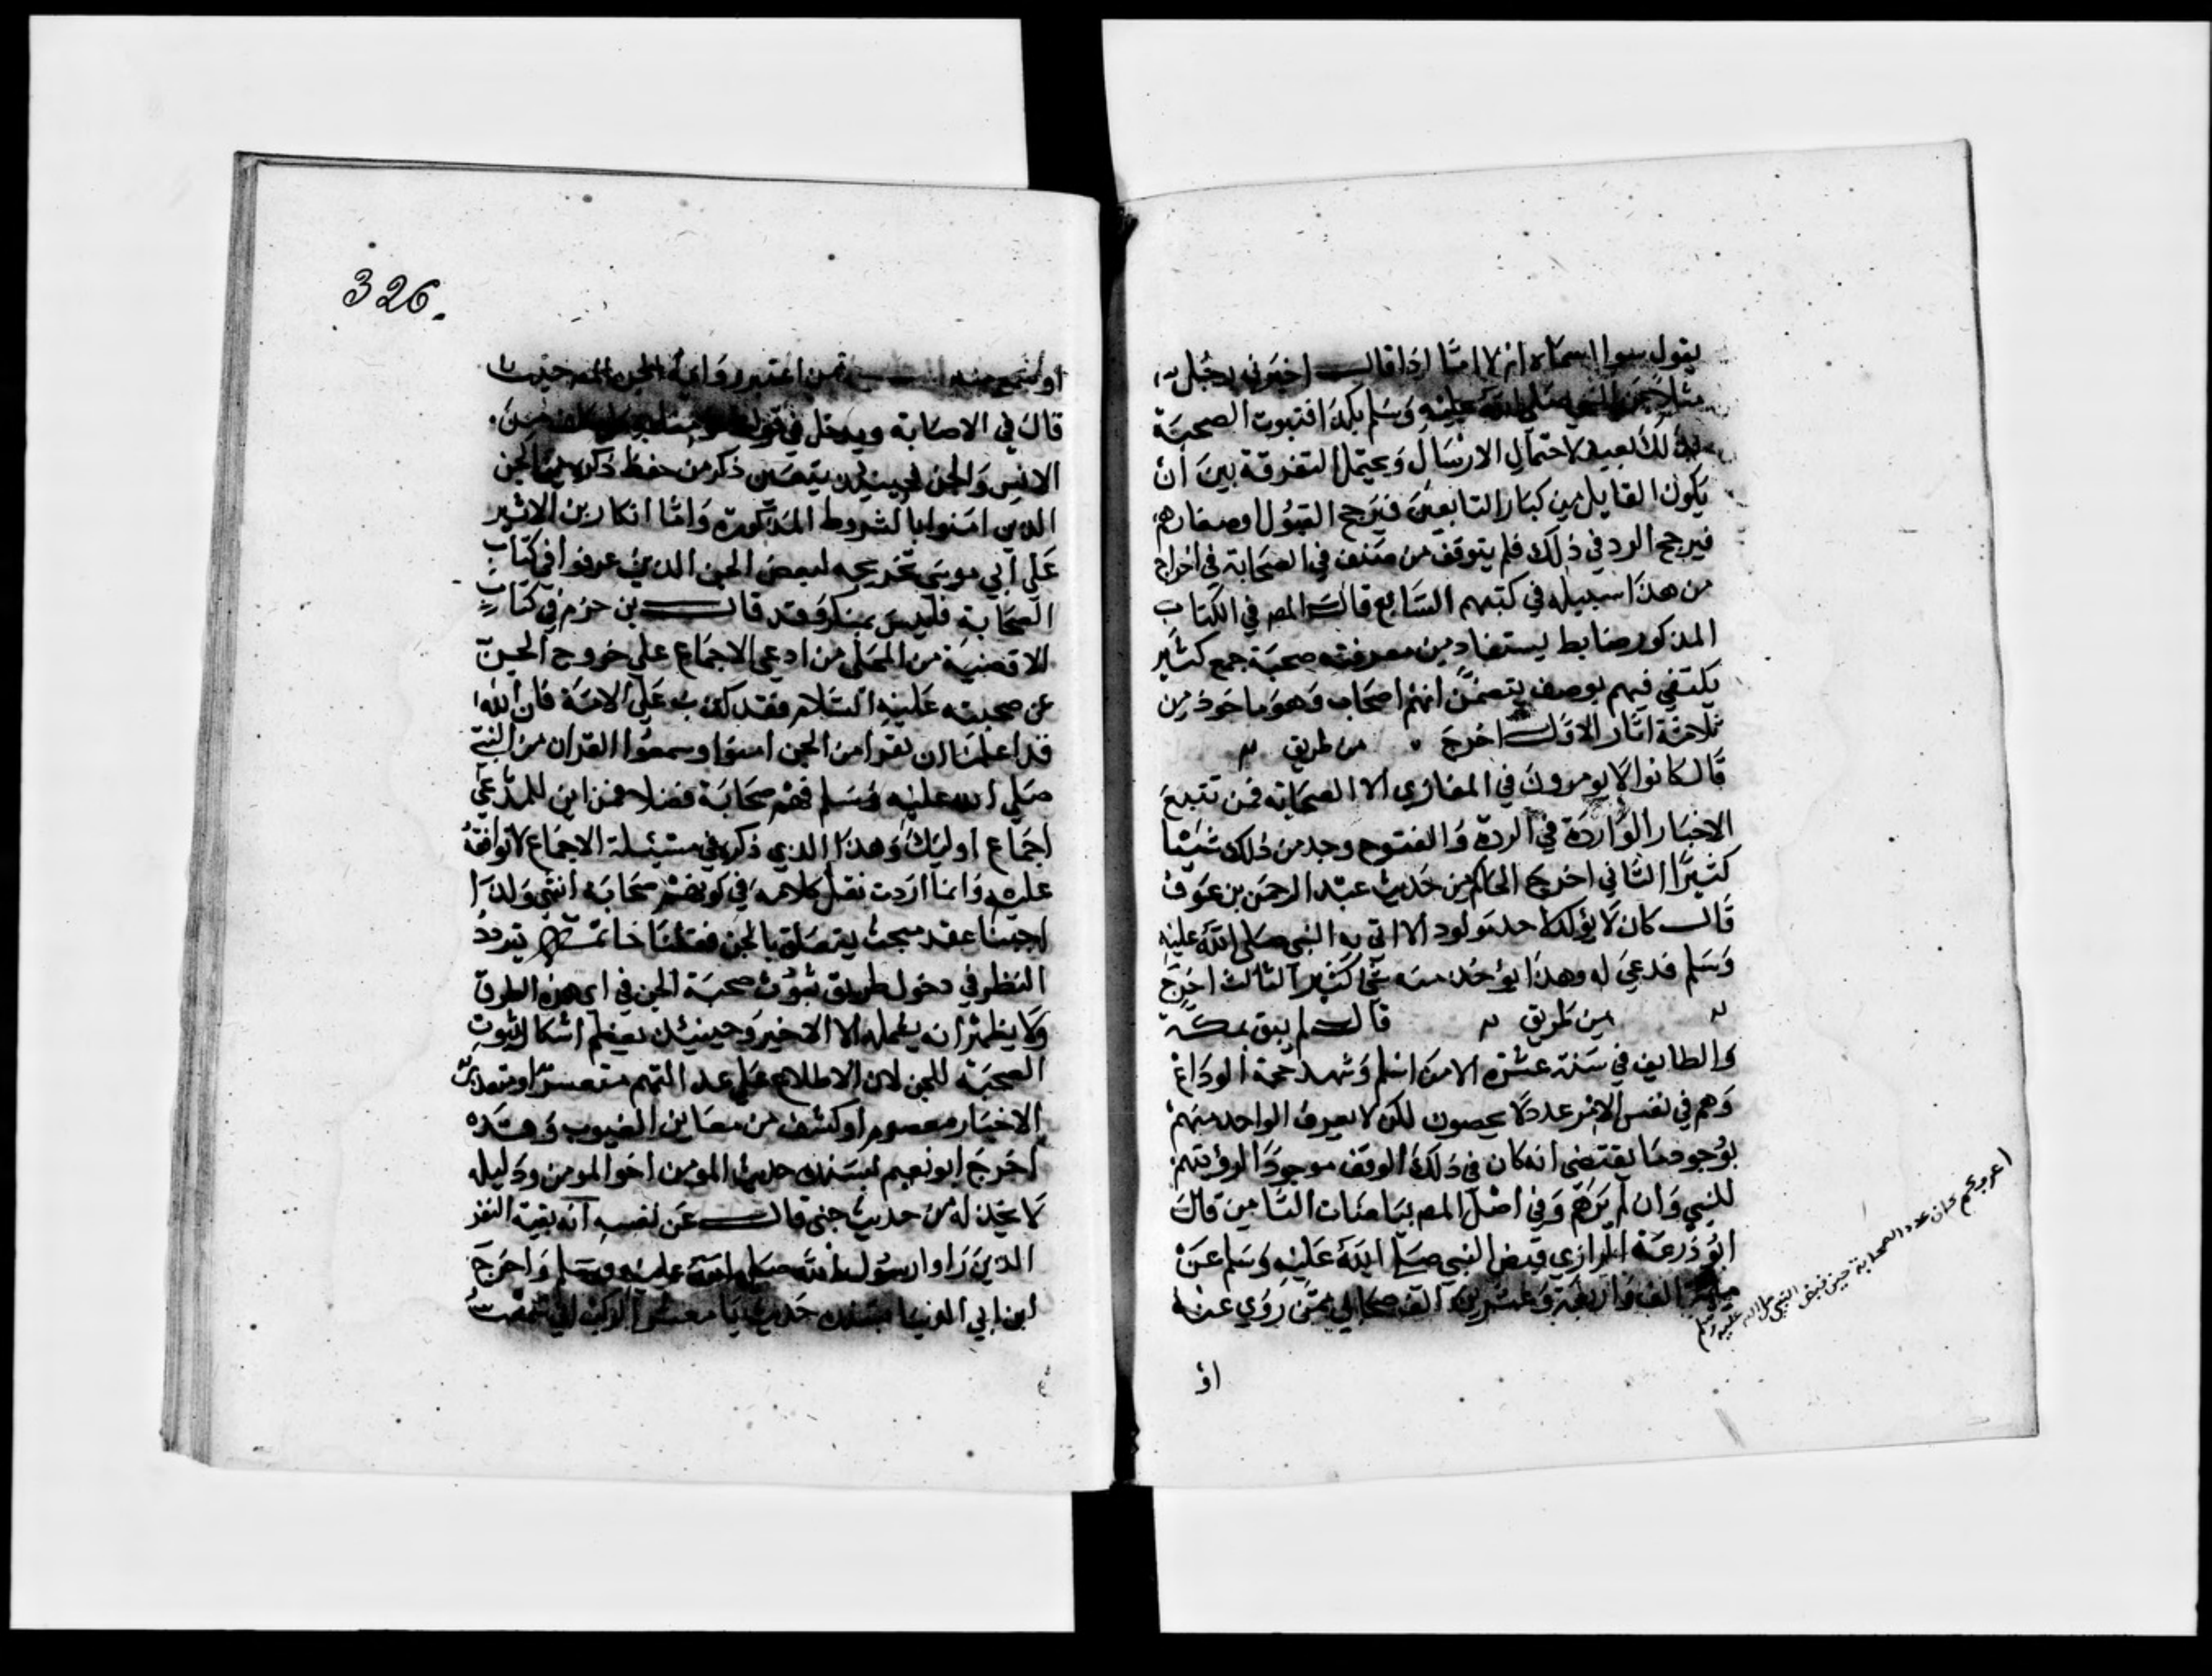 يقول سوا اسماه ام لا امّا اذا قال اخبرني رجل
مثلا عن النبي صلى الله عليه وسلم بكذا فثبوت الصحبة
بذلك بعيد لاحتمال الارسال ويحتمل التفرقة بين ان
يكون القايل من كبار التابعين فيرجح القبول او صغارهم
فيرجح الرد في ذلك فلم يتوقف من صنف في الصحابة في اخراج
من هذا سبيله في كتبهم السابع قال المص في الكتاب
المذكور ضابط يستفاد من معرفته صحبة جمع كثير
يكتفي فيهم بوصف يتضمن انهم اصحاب وهو ماخوذ من
ثلاثة اثار الاول اخرج من طريق
قال كانوا لا يومرون في المغازي الا الصحابة فمن تتبع
الاخبار الواردة في الردة والفتوح وجد من ذلك شيئا
كثيرا الثاني اخرج الحاكم من حديث عبد الرحمن بن عوف
قال كان لا يولد لاحد مولود الا اتى به النبي صلى الله عليه
وسلم فدعى له وهذا يؤخذ منه شي كثير الثالث اخرج
من طريق قال لم يبق بمكة
والطايف في سنة عشرة الا من اسلم وشهد حجة الوداع
وهم في نفس الامر عدد لا يحصون لكن لا يعرف الواحد منهم
بوجود ما يقتضي انه كان في ذلك الوقف موجودا لرؤيتهم
للنبي وان لم يرهم وفي اصل المص بياضات الثامن قال
ابو زرعة الرازي قبض النبي صلى الله عليه وسلم عن
ماية الف واربعة وعشرين الف صحابي ممن روي عنه
او
اعرف كم كان عدد الصحابة حين قبض النبي صلى الله عليه وسلم
326.
او سمع منه ثمن اعتبر رواية الجن المص حيث
قال في الاصابة ويدخل في قولنا
الانس والجن فحينئذ يتعين ذكر من حفظ ذكره من الجن
الذين امنوا بالشروط المذكورة وامّا انكار بن الاثير
على ابي موسى تخريجه لبعض الجن الذين عرفوا في كتاب
الصحابة فليس بمنكر فقد قال بن حزم في كتاب
الاقضية من المحلى من ادعى الاجماع على خروج الجن
عن صحبته عليه السلام فقد كذب على الامة فان الله
قد اعلمنا ان نفرا من الجن امنوا وسمعوا القران من النبي
صلى الله عليه وسلم فهم صحابة فضلا فمن اين للمدعي
اجماع اوليك وهذا الذي ذكره في مسئلة الاجماع لا نوافقه
عليه وانما اردت نقل كلامه في كونهم صحابة انتهى ولذا
اجبنا عقد مبحث يتعلق بالجن فقلنا خاتمة تردد
النظر في دخول طريق ثبوت صحبة الجن في اي هذه الطرق
ولا يظهر انه يشمله الا الاخير وحينئذ يعظم اشكال ثبوت
الصحبة للجن لان الاطلاع على عدالتهم متعسر او متعذر
الاخبار معصوم او كشف من معاين الغيوب وهذه
اخرج ابو نعيم بسنده حديث المومن اخو المومن ودليله
لا يخذله من حديث جني قال عن نفسه انه بقية النفر
الذين راوا رسول الله صلى الله عليه وسلم واخرج
ابن ابي الدنيا بسنده حديث يا معشر الركب اني سمعت